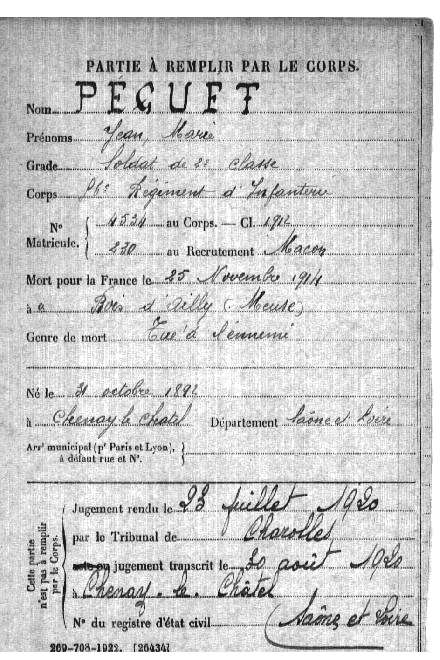 PARTIE À REMPLIR PAR LE CORPS.
Nom PÉGUET
Prénoms Jean, Marie
Grade Soldat de 2e classe
Corps Régiment d'Infanterie
N° Matricule. 4534 au Corps. — Cl. 1912
230 au Recrutement Macon
Mort pour la France le 25 Novembre 1914
à a Bois d'Ailly (Meuse)
Genre de mort Tué à l'ennemi
Né le 31 octobre 1892
à Chenay le Chatel Département Saône et Loire
Arrt municipal (pr Paris et Lyon),
à défaut rue et N°.
Cette partie
n'est pas à remplir
par le Corps.
Jugement rendu le 23 juillet 1920
par le Tribunal de Charolles
jugement transcrit le 30 août 1920
à Chenay-le-Châtel
N° du registre d'état civil Saône et Loire
269-708-1922. [26434]